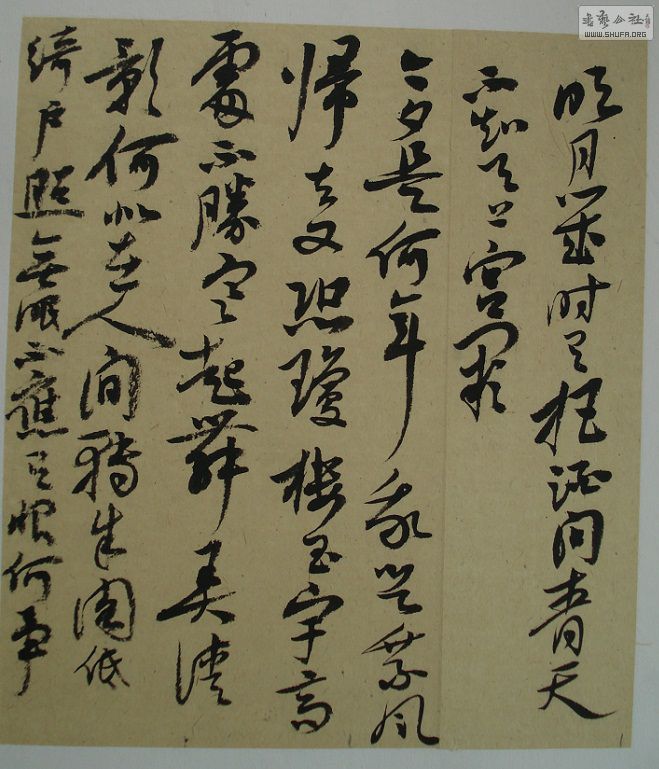 明月幾时有把酒问青天
不知天上宫闕
今夕是何年我欲乘风
歸去又恐瓊樓玉宇高
處不勝寒起舞弄清
影何似在人间轉朱阁低
綺户照無眠不應有恨何事
书艺公社
WWW.SHUFA.ORG